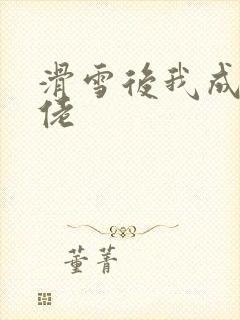 滑雪後我成
佬
董菁